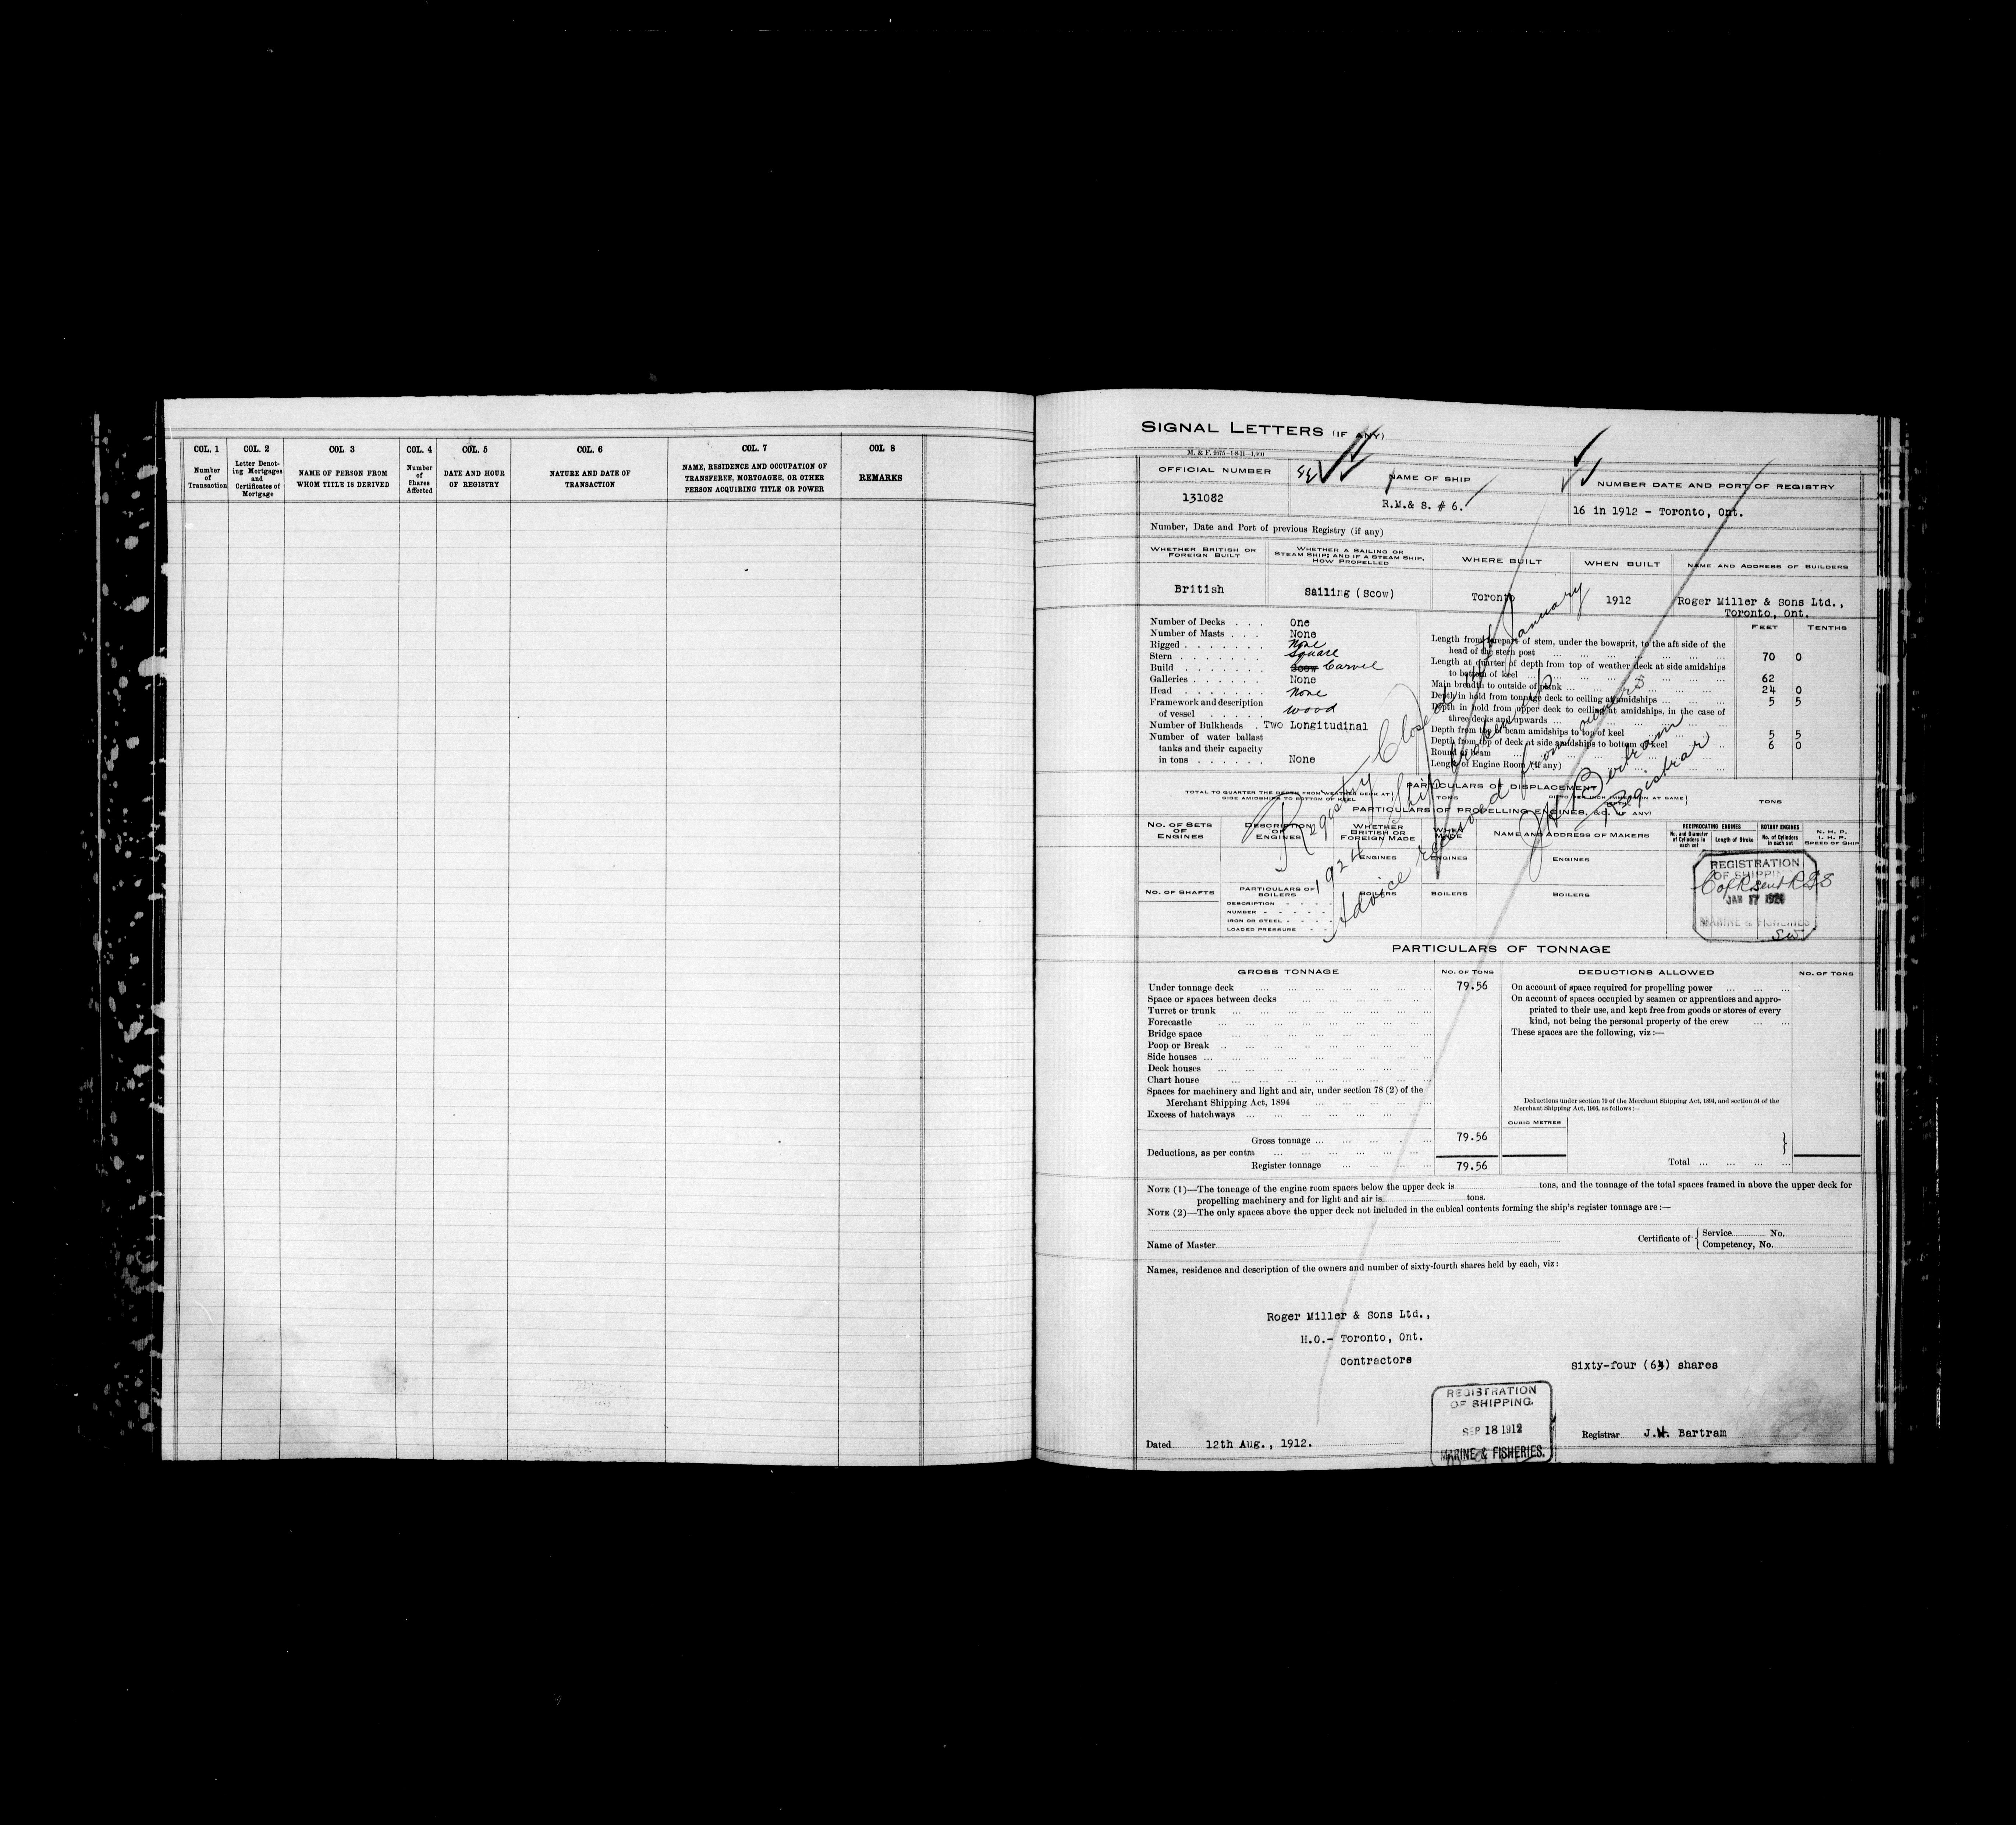 COL. 1
Number
of
Transaction
COL. 2
Letter Denot-
ing Mortgages
and
Certificates of
Mortgage
COL 3
NAME OF PERSON FROM
WHOM TITLE IS DERIVED
COL. 4
Number
of
Shares
Affected
COL. 5
DATE AND HOUR
OF REGISTRY
COL. 6
NATURE AND DATE OF
TRANSACTION
COL. 7
NAME, RESIDENCE AND OCCUPATION OF
TRANSFEREE, MORTGAGES, OR OTHER
PERSON ACQUIRING TITLE OR POWER
COL 8
REMARKS
SIGNAL LETTERS (IF ANY)
OFFICIAL NUMBER
131082
NAME OF SHIP
R.M.& S. # 6.
NUMBER DATE AND PORT OF REGISTRY
16 in 1912 - Toronto, Ont.
Number, Date and Port of previous Registry (if any)
WHETHER BRITISH OR
FOREIGN BUILT
British
WHETHER A SAILING OR
STEAM SHIP; AND IF A STEAM SHIP,
HOW PROPELLED
Sailing (Scow)
WHERE BUILT
Toronto
WHEN BUILT
1912
NAME AND ADDRESS OF BUILDERS
Roger Miller & Sons Ltd.,
Toronto, Ont.
Number of Decks . . . One
Number of Masts . . . None
Rigged . . . . . . . None
Stern . . . . . . . Square
Build . . . . . . . Scow Carvel
Galleries . . . . . . None
Head . . . . . . . None
Framework and description
of vessel . . . . . wood
Number of Bulkheads . Two Longitudinal
Number of water ballast
tanks and their capacity
in tons . . . . . . None
FEET TENTHS
Length from forepart of stem, under the bowsprit, to the aft side of the
head of the stern post 70 0
Length at quarter of depth from top of weather deck at side amidships
to bottom of keel 62
Main breadth to outside of plank 24 0
Depth in hold from tonnage deck to ceiling at amidships 5 5
Depth in hold from upper deck to ceiling at amidships, in the case of
three decks and upwards
Depth from top of beam amidships to top of keel 5 5
Depth from top of deck at side amidships to bottom of keel 6 0
Round of beam
Length of Engine Room (if any)
Registry Closed January
1924 Ship broken up
Advice received from owners
J H Bartram
Registrar
PARTICULARS OF DISPLACEMENT
TOTAL TO QUARTER THE DEPTH FROM WEATHER DECK AT
SIDE AMIDSHIPS TO BOTTOM OF KEEL
TONS
TONS
PARTICULARS OF PROPELLING ENGINES, &C. (IF ANY)
NO. OF SETS
OF
ENGINES
DESCRIPTION
OF
ENGINES
WHETHER
BRITISH OR
FOREIGN MADE
WHEN
MADE
NAME AND ADDRESS OF MAKERS
RECIPROCATING ENGINES
No. and Diameter
of Cylinders in
each set
Length of Stroke
ROTARY ENGINES
No. of Cylinders
in each set
N. H. P.
I. H. P.
SPEED OF SHIP
ENGINES
ENGINES
ENGINES
NO. OF SHAFTS
PARTICULARS OF
BOILERS
DESCRIPTION
NUMBER
IRON OR STEEL
LOADED PRESSURE
BOILERS
BOILERS
BOILERS
REGISTRATION
OF SHIPPING
C of R sent RGS
JAN 17 192
MARINE & FISHERIES
PARTICULARS OF TONNAGE
GROSS TONNAGE
NO. OF TONS
Under tonnage deck 79.56
Space or spaces between decks
Turret or trunk
Forecastle
Bridge space
Poop or Break
Side houses
Deck houses
Chart house
Spaces for machinery and light and air, under section 78 (2) of the
Merchant Shipping Act, 1894
Excess of hatchways
Gross tonnage 79.56
Deductions, as per contra
Register tonnage 79.56
DEDUCTIONS ALLOWED
NO. OF TONS
On account of space required for propelling power
On account of spaces occupied by seamen or apprentices and appro-
priated to their use, and kept free from goods or stores of every
kind, not being the personal property of the crew
These spaces are the following, viz:—
Deductions under section 79 of the Merchant Shipping Act, 1894, and section 54 of the
Merchant Shipping Act, 1906, as follows:—
CUBIC METRES
Total
NOTE (1)—The tonnage of the engine room spaces below the upper deck is tons, and the tonnage of the total spaces framed in above the upper deck for
propelling machinery and for light and air is tons.
NOTE (2)—The only spaces above the upper deck not included in the cubical contents forming the ship's register tonnage are:—
Name of Master
Certificate of { Service No.
Competency, No.
Names, residence and description of the owners and number of sixty-fourth shares held by each, viz:
Roger Miller & Sons Ltd.,
H.O.- Toronto, Ont.
Contractors
Sixty-four (64) shares
REGISTRATION
OF SHIPPING.
SEP 18 1912
MARINE & FISHERIES.
Dated 12th Aug., 1912.
Registrar J.H. Bartram